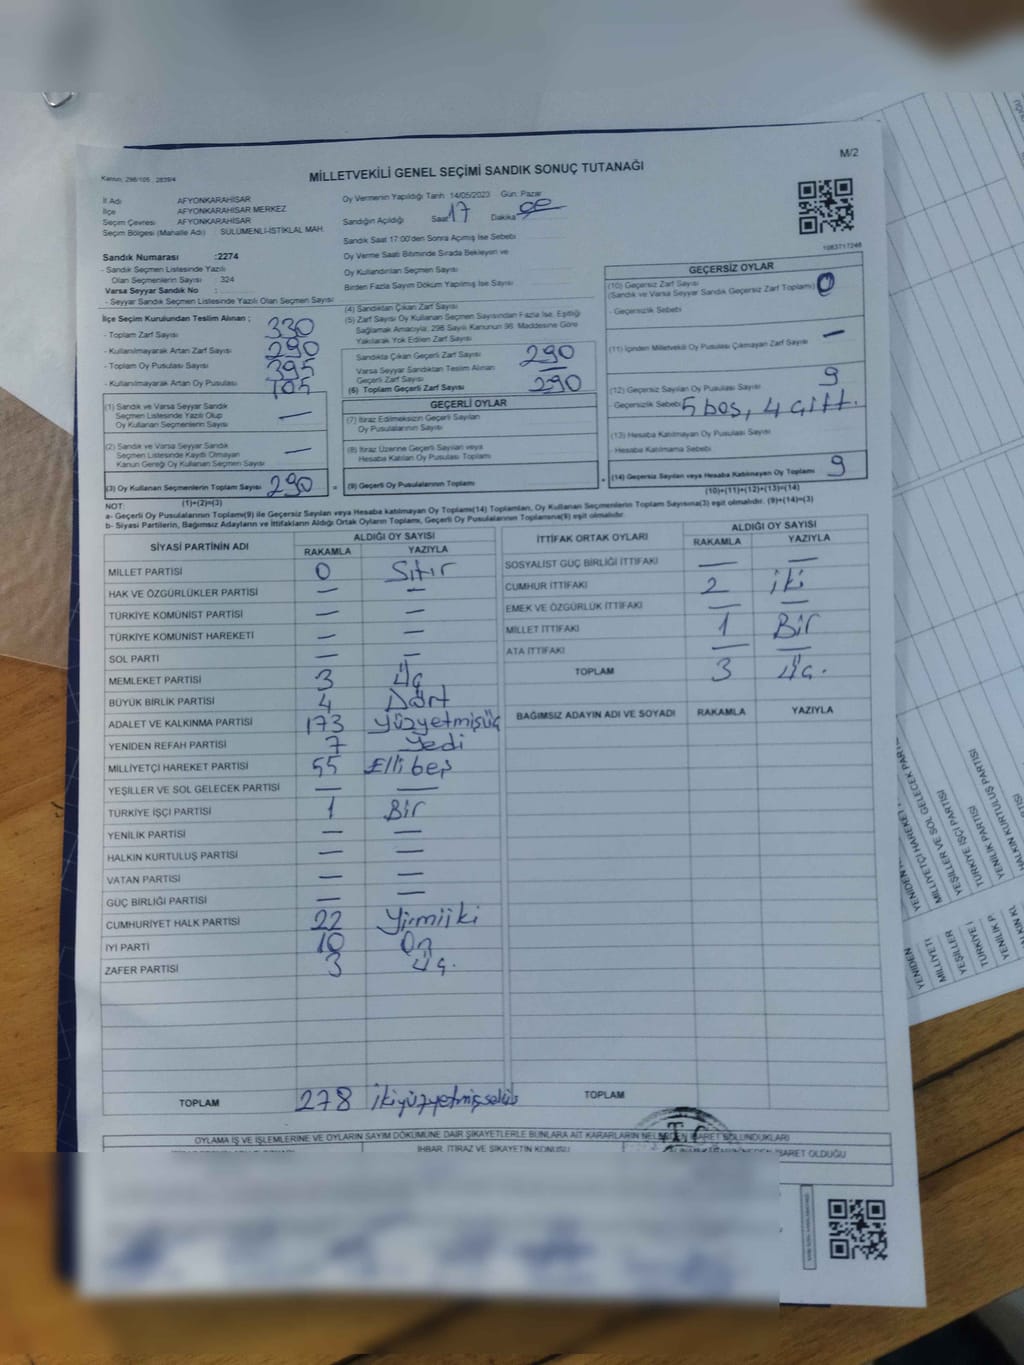 M/2
Kanun: 298/105 , 2839/4
MİLLETVEKİLİ GENEL SEÇİMİ SANDIK SONUÇ TUTANAĞI
İl Adı AFYONKARAHİSAR
İlçe AFYONKARAHİSAR MERKEZ
Seçim Çevresi AFYONKARAHİSAR
Seçim Bölgesi (Mahalle Adı) : SÜLÜMENLİ-İSTİKLAL MAH.
Oy Vermenin Yapıldığı Tarih 14/05/2023 Gün: Pazar
Sandığın Açıldığı Saat 17 Dakika
Sandık Saat 17:00'den Sonra Açılmış İse Sebebi
Oy Verme Saati Bitiminde Sırada Bekleyen ve
Oy Kullandırılan Seçmen Sayısı
Birden Fazla Sayım Döküm Yapılmış İse Sayısı
Sandık Numarası :2274
- Sandık Seçmen Listesinde Yazılı
Olan Seçmenlerin Sayısı : 324
Varsa Seyyar Sandık No :
- Seyyar Sandık Seçmen Listesinde Yazılı Olan Seçmen Sayısı
1083717246
İlçe Seçim Kurulundan Teslim Alınan ;
- Toplam Zarf Sayısı 330
- Kullanılmayarak Artan Zarf Sayısı 290
- Toplam Oy Pusulası Sayısı 395
- Kullanılmayarak Artan Oy Pusulası 105
(1) Sandık ve Varsa Seyyar Sandık
Seçmen Listesinde Yazılı Olup
Oy Kullanan Seçmenlerin Sayısı —
(2) Sandık ve Varsa Seyyar Sandık
Seçmen Listesinde Kayıtlı Olmayan
Kanun Gereği Oy Kullanan Seçmen Sayısı —
(3) Oy Kullanan Seçmenlerin Toplam Sayısı 290
(1)+(2)=(3)
(4) Sandıktan Çıkan Zarf Sayısı
(5) Zarf Sayısı Oy Kullanan Seçmen Sayısından Fazla İse, Eşitliği
Sağlamak Amacıyla, 298 Sayılı Kanunun 98. Maddesine Göre
Yakılarak Yok Edilen Zarf Sayısı
Sandıkta Çıkan Geçerli Zarf Sayısı 290
Varsa Seyyar Sandıktan Teslim Alınan
Geçerli Zarf Sayısı —
(6) Toplam Geçerli Zarf Sayısı 290
GEÇERLİ OYLAR
(7) İtiraz Edilmeksizin Geçerli Sayılan
Oy Pusulalarının Sayısı
(8) İtiraz Üzerine Geçerli Sayılan veya
Hesaba Katılan Oy Pusulası Toplamı
(9) Geçerli Oy Pusulalarının Toplamı
GEÇERSİZ OYLAR
(10) Geçersiz Zarf Sayısı
(Sandık ve Varsa Seyyar Sandık Geçersiz Zarf Toplamı) 0
- Geçersizlik Sebebi
(11) İçinden Milletvekili Oy Pusulası Çıkmayan Zarf Sayısı —
(12) Geçersiz Sayılan Oy Pusulası Sayısı 9
- Geçersizlik Sebebi 5 boş, 4 çift.
(13) Hesaba Katılmayan Oy Pusulası Sayısı
- Hesaba Katılmama Sebebi
(14) Geçersiz Sayılan veya Hesaba Katılmayan Oy Toplamı 9
(10)+(11)+(12)+(13)=(14)
NOT:
a- Geçerli Oy Pusulalarının Toplamı(9) ile Geçersiz Sayılan veya Hesaba katılmayan Oy Toplamı(14) Toplamları, Oy Kullanan Seçmenlerin Toplam Sayısına(3) eşit olmalıdır. (9)+(14)=(3)
b- Siyasi Partilerin, Bağımsız Adayların ve İttifakların Aldığı Ortak Oyların Toplamı, Geçerli Oy Pusulalarının Toplamına(9) eşit olmalıdır.
SİYASİ PARTİNİN ADI ALDIĞI OY SAYISI
RAKAMLA YAZIYLA
MİLLET PARTİSİ 0 Sıfır
HAK VE ÖZGÜRLÜKLER PARTİSİ — —
TÜRKİYE KOMÜNİST PARTİSİ — —
TÜRKİYE KOMÜNİST HAREKETİ — —
SOL PARTİ — —
MEMLEKET PARTİSİ 3 Üç
BÜYÜK BİRLİK PARTİSİ 4 Dört
ADALET VE KALKINMA PARTİSİ 173 Yüzyetmişüç
YENİDEN REFAH PARTİSİ 7 Yedi
MİLLİYETÇİ HAREKET PARTİSİ 55 Ellibeş
YEŞİLLER VE SOL GELECEK PARTİSİ — —
TÜRKİYE İŞÇİ PARTİSİ 1 Bir
YENİLİK PARTİSİ — —
HALKIN KURTULUŞ PARTİSİ — —
VATAN PARTİSİ — —
GÜÇ BİRLİĞİ PARTİSİ — —
CUMHURİYET HALK PARTİSİ 22 Yirmiiki
İYİ PARTİ 10 On
ZAFER PARTİSİ 3 Üç.
TOPLAM 278 ikiyüzyetmişsekiz
İTTİFAK ORTAK OYLARI ALDIĞI OY SAYISI
RAKAMLA YAZIYLA
SOSYALİST GÜÇ BİRLİĞİ İTTİFAKI — —
CUMHUR İTTİFAKI 2 iki
EMEK VE ÖZGÜRLÜK İTTİFAKI — —
MİLLET İTTİFAKI 1 Bir
ATA İTTİFAKI — —
TOPLAM 3 Üç.
BAĞIMSIZ ADAYIN ADI VE SOYADI RAKAMLA YAZIYLA
TOPLAM
T.C.
OYLAMA İŞ VE İŞLEMLERİNE VE OYLARIN SAYIM DÖKÜMÜNE DAİR ŞİKAYETLERLE BUNLARA AİT KARARLARIN NELERDEN İBARET BULUNDUKLARI
İHBAR, İTİRAZ VE ŞİKAYETİN KONUSU
İBARET OLDUĞU
YENİDEN
MİLLİYETÇİ HAREKET
YEŞİLLER VE SOL GELECEK PARTİSİ
TÜRKİYE İŞÇİ PARTİSİ
YENİLİK PARTİSİ
HALKIN KURTULUŞ PARTİSİ
YENİDEN
MİLLİYETÇİ
YEŞİLLER
TÜRKİYE İ
YENİLİK P
HALKIN KU